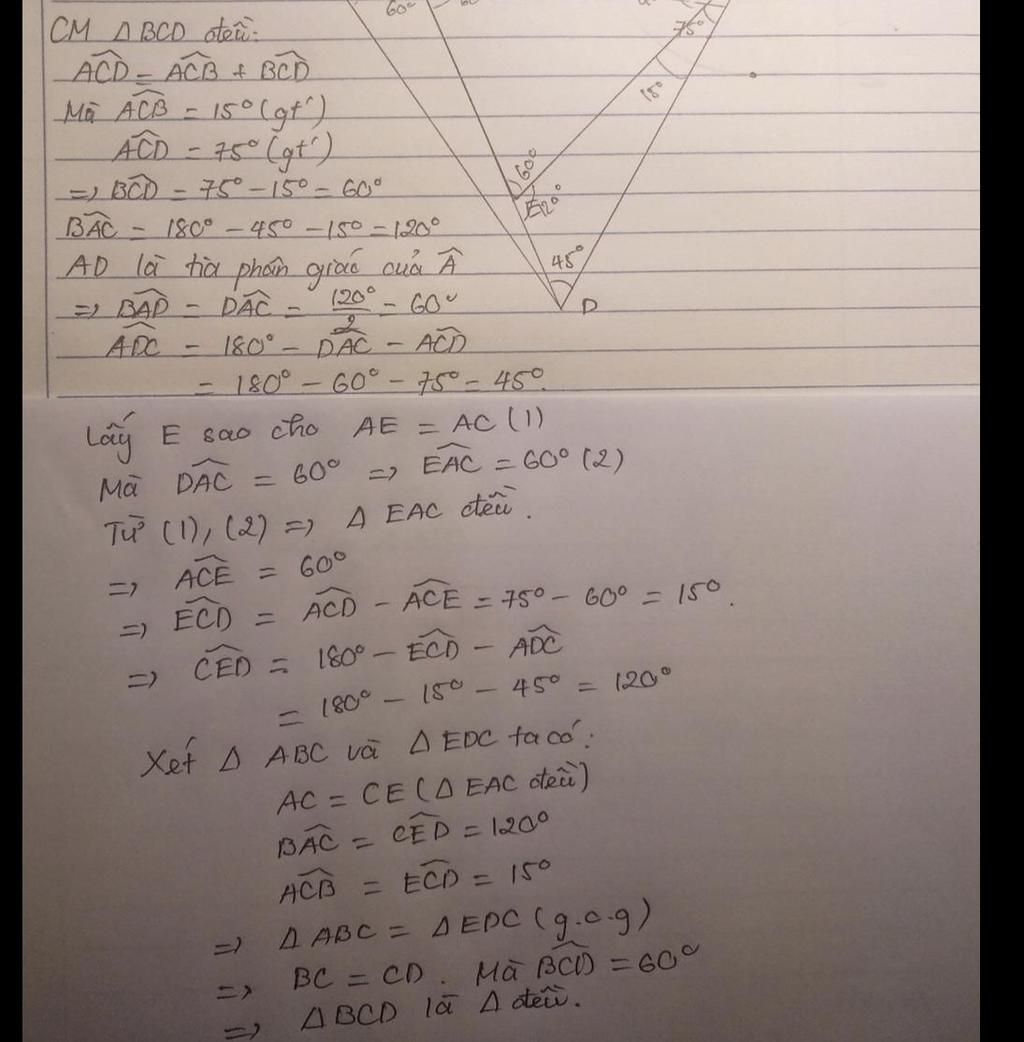 60°
75°
CM Δ BCD đều:
ACD = ACB + BCD
Mà ACB = 15° (gt)
15°
ACD = 75° (gt)
60°
=> BCD = 75° - 15° = 60°
E
BAC = 180° - 45° - 15° = 120°
AD là tia phân giác của A
45°
=> BAD = DAC = 120°/2 = 60°
D
ADC = 180° - DAC - ACD
= 180° - 60° - 75° = 45°.
Lấy E sao cho AE = AC (1)
Mà DAC = 60° => EAC = 60° (2)
Từ (1), (2) => Δ EAC đều.
=> ACE = 60°
=> ECD = ACD - ACE = 75° - 60° = 15°.
=> CED = 180° - ECD - ADC
= 180° - 15° - 45° = 120°
Xét Δ ABC và Δ EDC ta có:
AC = CE (Δ EAC đều)
BAC = CED = 120°
ACB = ECD = 15°
=> Δ ABC = Δ EDC (g.c.g)
=> BC = CD. Mà BCD = 60°
=> Δ BCD là Δ đều.